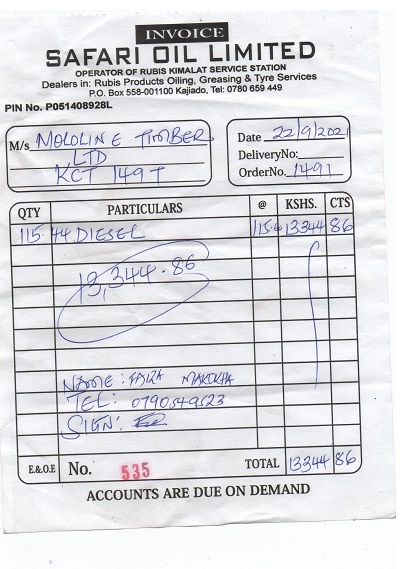 INVOICE
SAFARI OIL LIMITED
OPERATOR OF RUBIS KIMALAT SERVICE STATION
Dealers in: Rubis Products Oiling, Greasing & Tyre Services
P.O. Box 558-001100 Kajiado, Tel: 0780 659 449
PIN No. P051408928L
M/s MOLOLINE TIMBER
LTD
KCT 149T
Date 22/9/2021
DeliveryNo:
OrderNo. 1491
QTY PARTICULARS @ KSHS. CTS
115.44 DIESEL 115.6 13344 86
13,344.86
NAME: FAIZA MAKOKHA
TEL: 0790549523
SIGN:
E.&O.E No. 535 TOTAL 13344 86
ACCOUNTS ARE DUE ON DEMAND